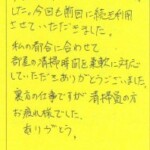 した。今回も前回に続き利用
させていただきました。
私の都合に合わせて
部屋の清掃時間を柔軟に対応し
ていただきありがとうございました。
裏方の仕事ですが清掃員の方
お疲れ様でした。
ありがとう。